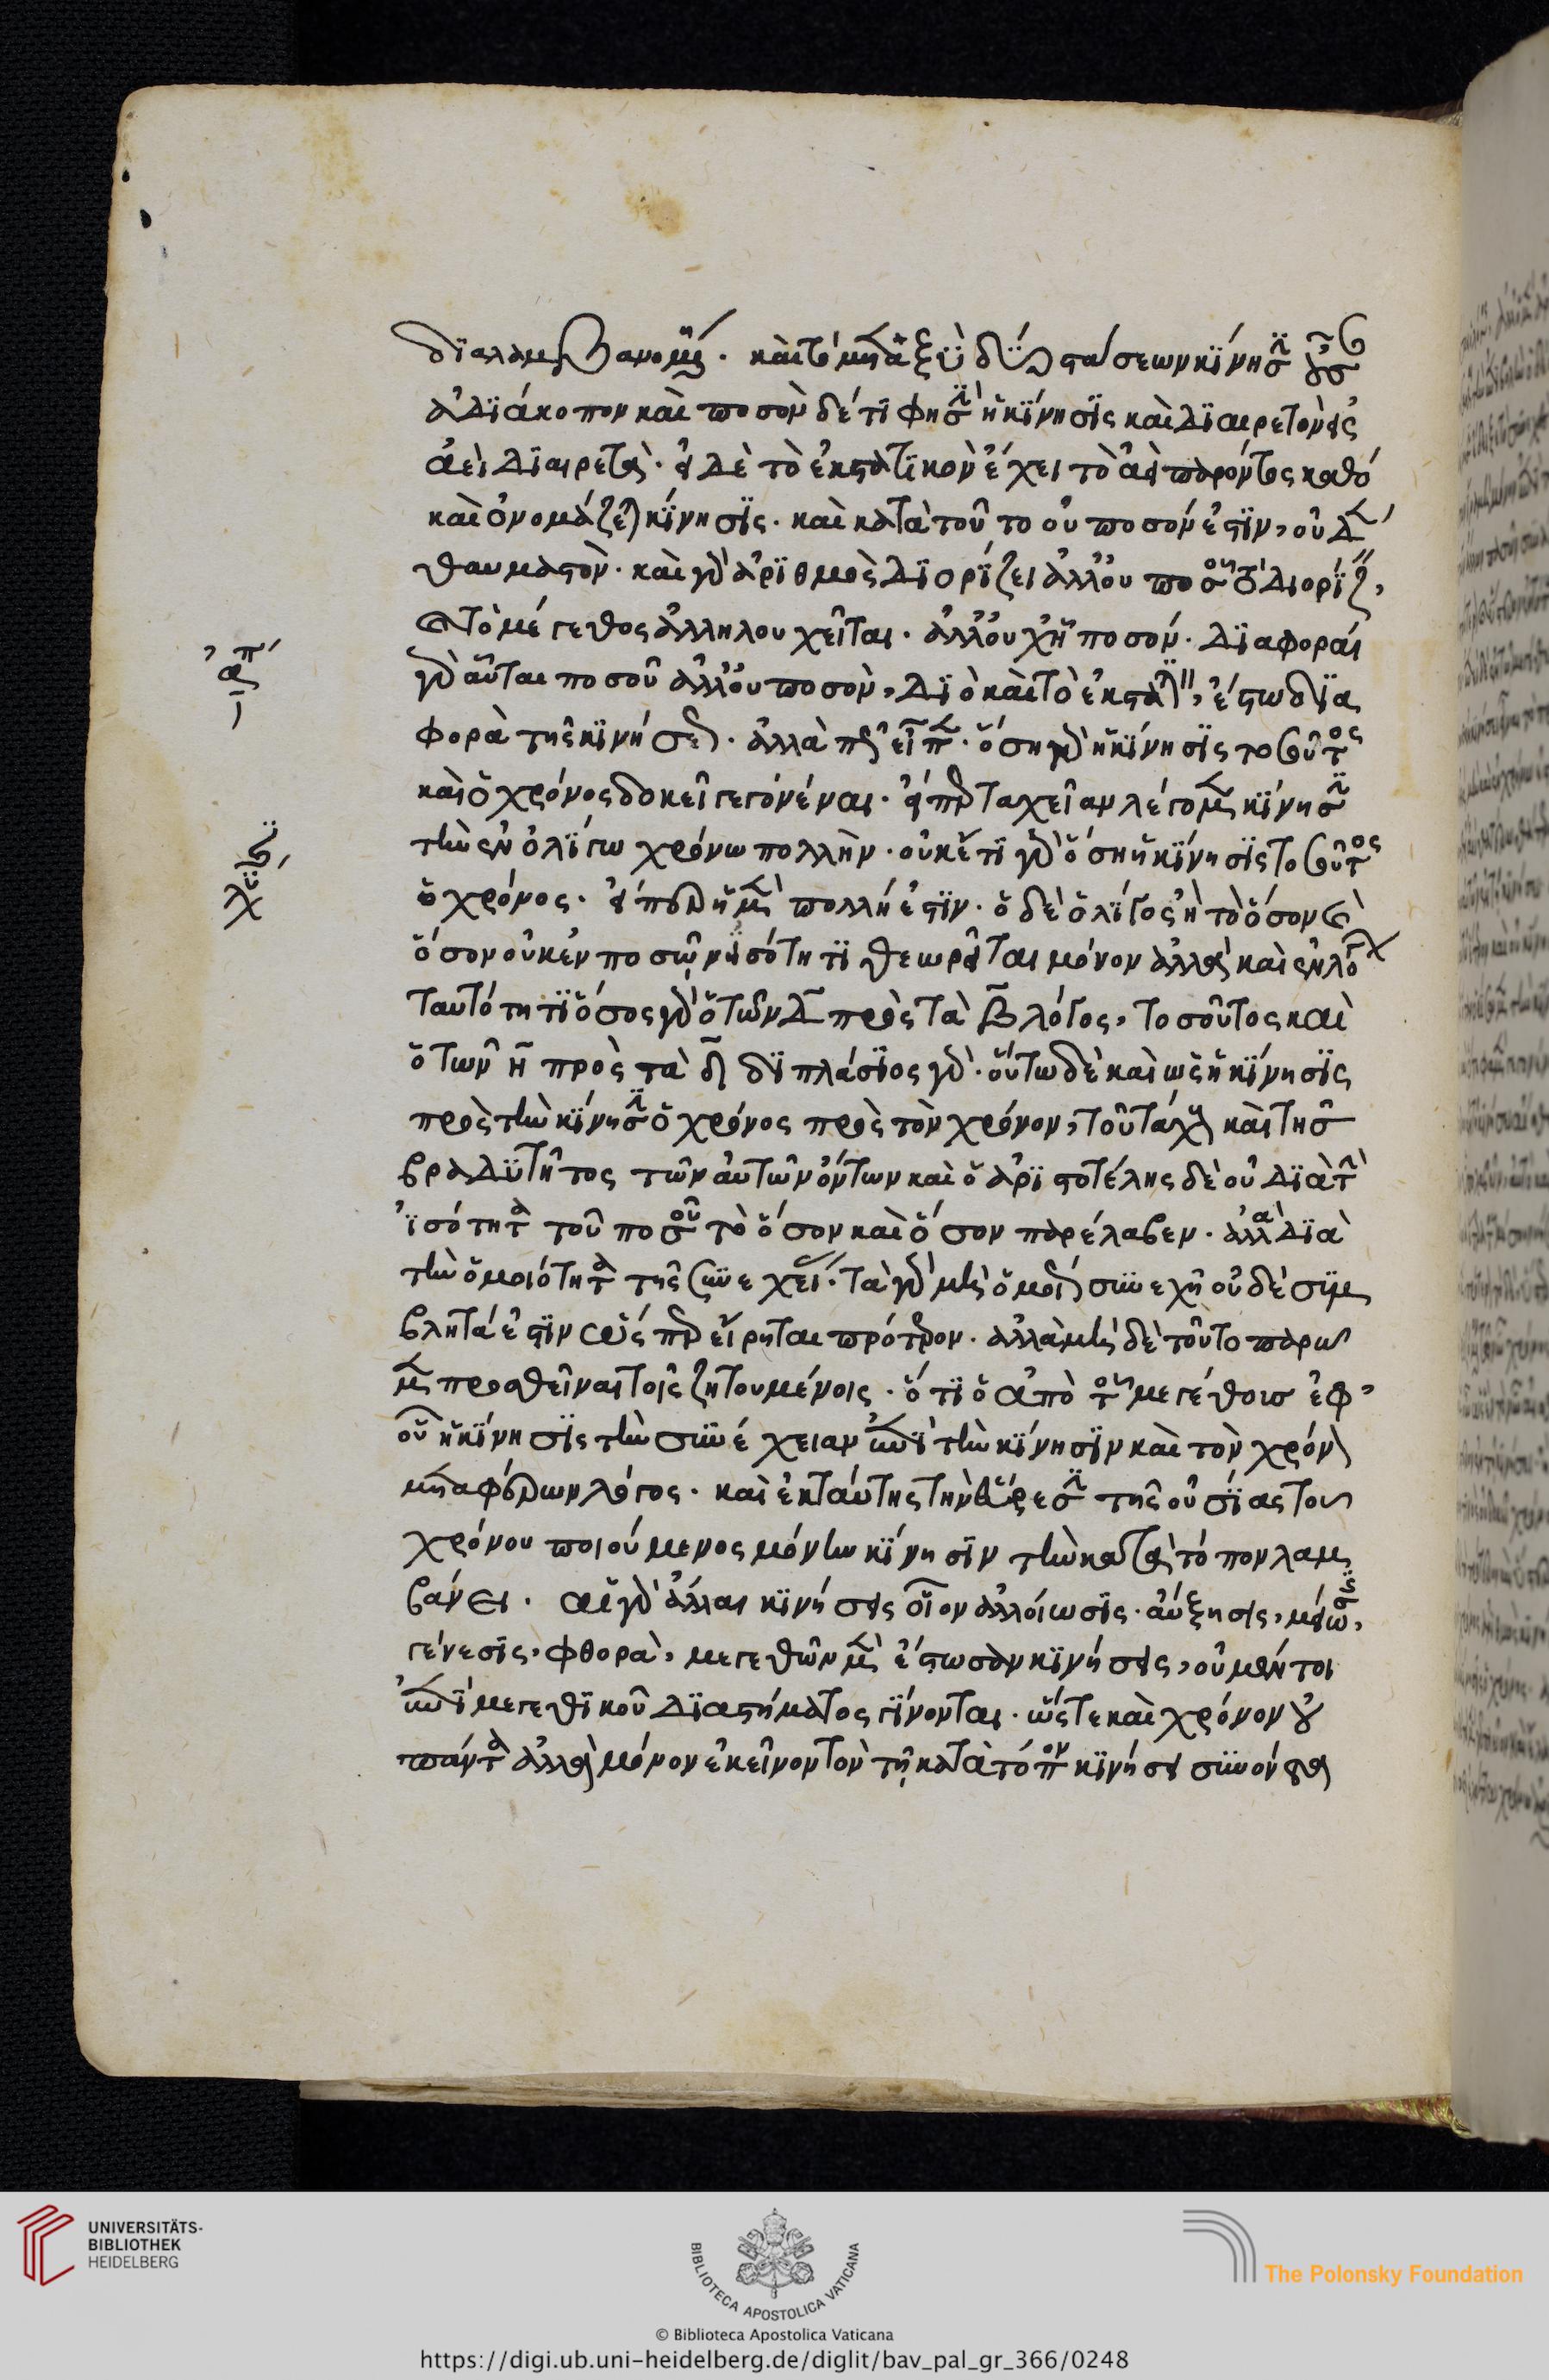 διαλαμβανομένη. καὶ τὸ μεταξὺ δύο στάσεων κίνησιν οὖσαν
ἀδιάκοπον καὶ ποσὸν δέ τί φησιν ἡ κίνησις καὶ διαιρετὸν εἰς
ἀεὶ διαιρετά. εἰ δὲ τὸ ἐκστατικὸν ἔχει τὸ ἀεὶ παρόντος καθό
καὶ ὀνομάζεται κίνησις. καὶ κατὰ τοῦτο οὐ ποσόν ἐστιν, οὐδὲν
θαυμαστόν. καὶ γὰρ ἀριθμὸς διορίζει ἀλλ' οὐ ποσὸν τὸ διορίζειν,
τὸ μέγεθος ἀλληλουχεῖται. ἀλλ' οὐχ ἧ ποσόν. διαφοραὶ
γὰρ αὗται ποσοῦ ἀλλ' οὐ ποσόν, διὸ καὶ τὸ ἐκστατικὸν, ἔστω δια
φορὰ τῆς κινήσεως. ἀλλὰ πῶς εἶπεν. ὅση γὰρ ἡ κίνησις τοσοῦτος
καὶ ὁ χρόνος δοκεῖ γεγονέναι. εἴπερ ταχεῖαν λέγομεν κίνησιν
τὴν ἐν ὀλίγω χρόνω πολλήν. οὐκέτι γὰρ ὅση ἡ κίνησις τοσοῦτος
ὁ χρόνος. εἴπερ ἡ μὲν πολλή ἐστιν. ὁ δὲ ὀλίγος ἢ τὸ ὅσον καὶ
ὅσον οὐκ ἐν ποσῶν ἰσότητι θεωρεῖται μόνον ἀλλὰ καὶ ἐν λόγων
ταυτότητι ὅσος γὰρ ὁ τῶν δ πρὸς τὰ β λόγος, τοσοῦτος καὶ
ὁ τῶν η πρὸς τὰ δ διπλάσιος γάρ. οὕτω δὲ καὶ ὡς ἡ κίνησις
πρὸς τὴν κίνησιν ὁ χρόνος πρὸς τὸν χρόνον, τοῦ τάχους καὶ τῆς
βραδυτῆτος τῶν αὐτῶν ὄντων καὶ ὁ ἀριστοτέλης δὲ οὐ διὰ τὴν
ἰσότητα τοῦ ποσοῦ τὸ ὅσον καὶ ὅσον παρέλαβεν. ἀλλὰ διὰ
τὴν ὁμοιότητα τῆς συνεχείας. τὰ γὰρ μὴ ὁμοίως συνεχῆ οὐδὲ συμ
βλητά ἐστιν ὥσπερ εἴρηται πρότερον. ἀλλὰ μὴν δὲ τοῦτο παρῶ
μεν προσθεῖναι τοῖς ζητουμένοις. ὅτι ὁ ἀπὸ τοῦ μεγέθους ἐφ'
οὗ ἡ κίνησις τὴν συνέχειαν ἐπὶ τὴν κίνησιν καὶ τὸν χρόνον
μεταφέρων λόγος. καὶ ἐκ ταύτης τὴν εὕρεσιν τῆς οὐσίας τοῦ
χρόνου ποιούμενος μόνην κίνησιν τὴν κατὰ τόπον λαμ
βάνει. αἱ γὰρ ἄλλαι κινήσεις οἷον ἀλλοίωσις. αὔξησις, μείωσις,
γένεσις, φθορὰ, μεγεθῶν μὲν ἔστωσαν κινήσεις, οὐ μέντοι
ἐπὶ μεγεθικοῦ διαστήματος γίνονται. ὥστε καὶ χρόνον οὐ
πάντα ἀλλὰ μόνον ἐκεῖνον τὸν τῆ κατὰ τόπον κινήσει συνόντα
UNIVERSITÄTS-
BIBLIOTHEK
HEIDELBERG
BIBLIOTECA APOSTOLICA VATICANA
The Polonsky Foundation
© Biblioteca Apostolica Vaticana
https://digi.ub.uni-heidelberg.de/diglit/bav_pal_gr_366/0248